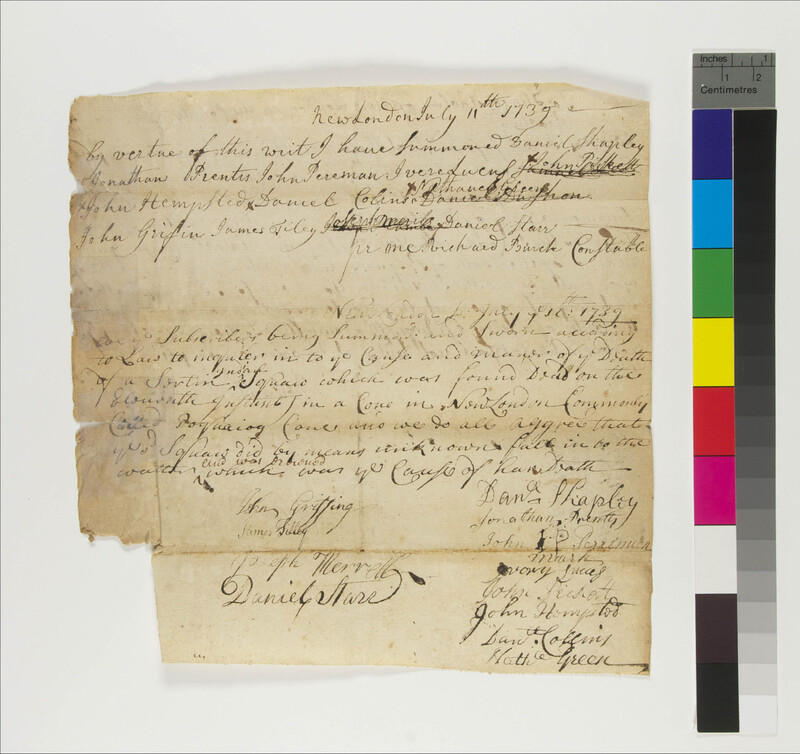 New London July 11th 1739
by vertue of this writ I have summoned Daniel Shapley
Jonathan Prentis John Pereman Ivere John Pickett
John Hempsted Daniel Colins Nathanel Green
John Griffin James Tiley Joseph Merrils Daniel Starr
pr me Richard Burch Constable
New London July ye 11th: 1739
we ye Subscribers being Summond and Sworn according
to Law to inquier in to ye Cause and maner of ye Death
of a Sertin indian Squaw which was found Dead on the
eleventh Instant in a Cove in New London Commonly
Called Poquaiog Cove and we do all aggree that
ye sd Squaw did by means unknown fall in to the
water and was drowned which was ye Cause of har Death
John Griffing
James Tilley
Joseph Merrell
Daniel Starr
Danll Shapley
Jonathan Prentis
John I P Perremen
mark
Ivory Lucas
John Pickett
John Hempsted
Danll Collins
Nathle Green
Inches 1
1 2
Centimetres